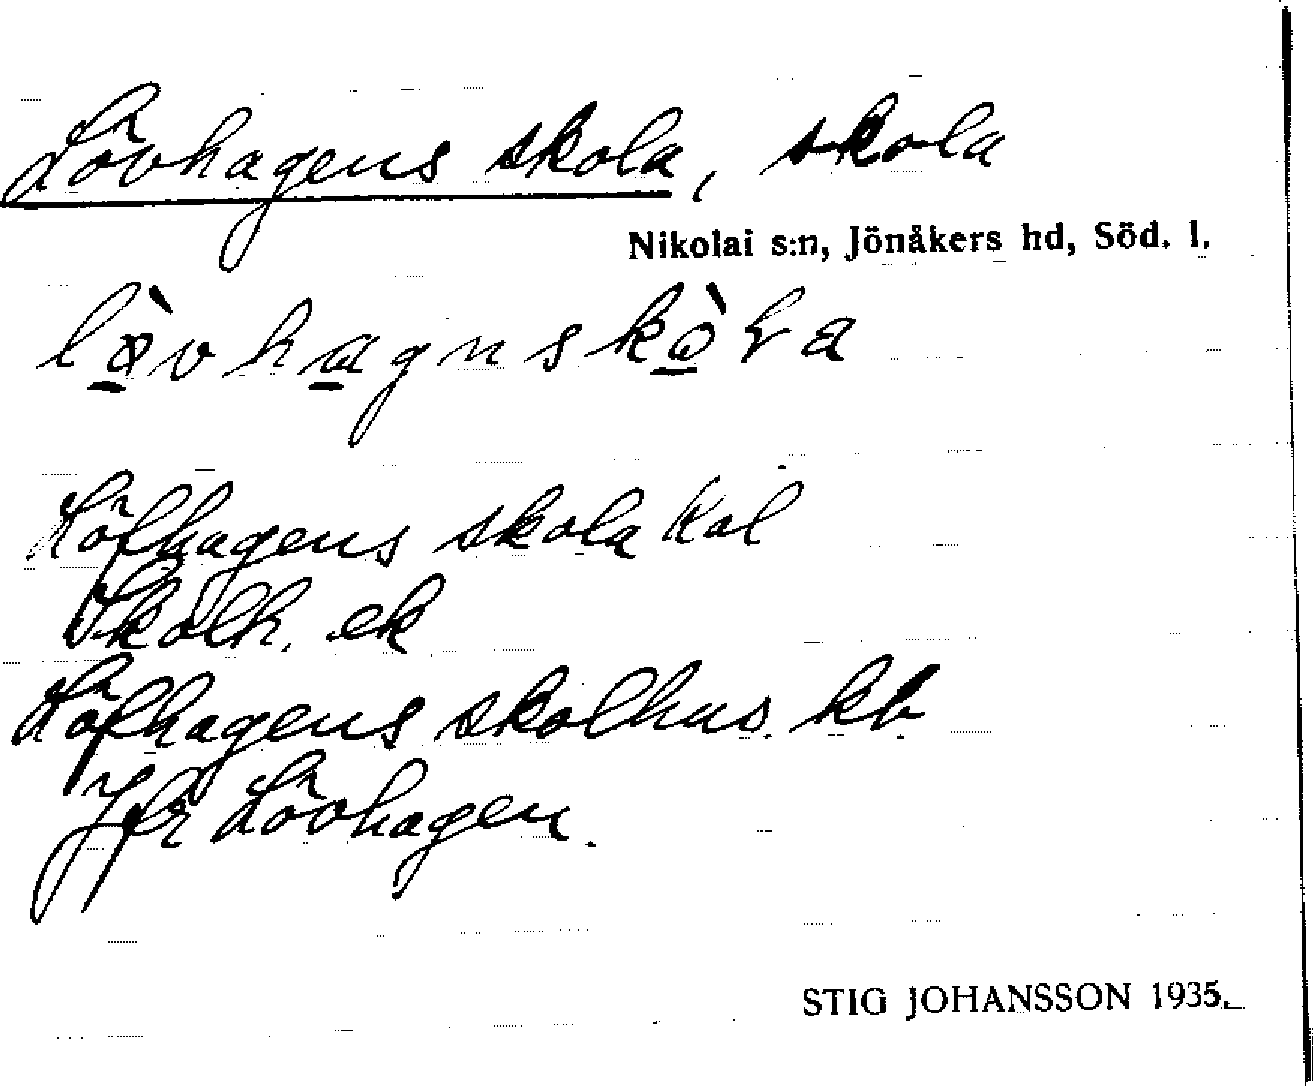 Lövhagens skola, skola
Nikolai s:n, Jönåkers hd, Söd. l.
lø̀vhagnskòɽa
Löfhagens skola Kal
Skolh. ek
Löfhagens skolhus. kb.
Jfr Lövhagen.
STIG JOHANSSON 1935.